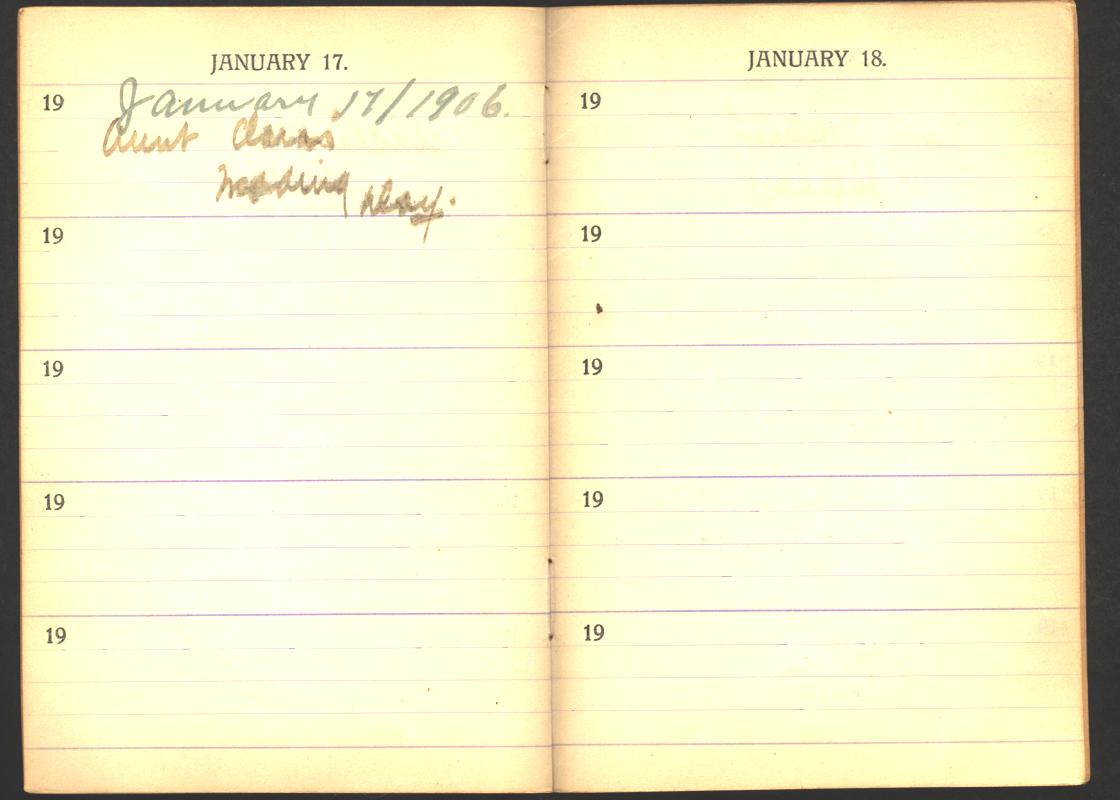 JANUARY 17.
19 January 17/1906.
Aunt Claras'
Wedding Day.
19
19
19
19
JANUARY 18.
19
19
19
19
19